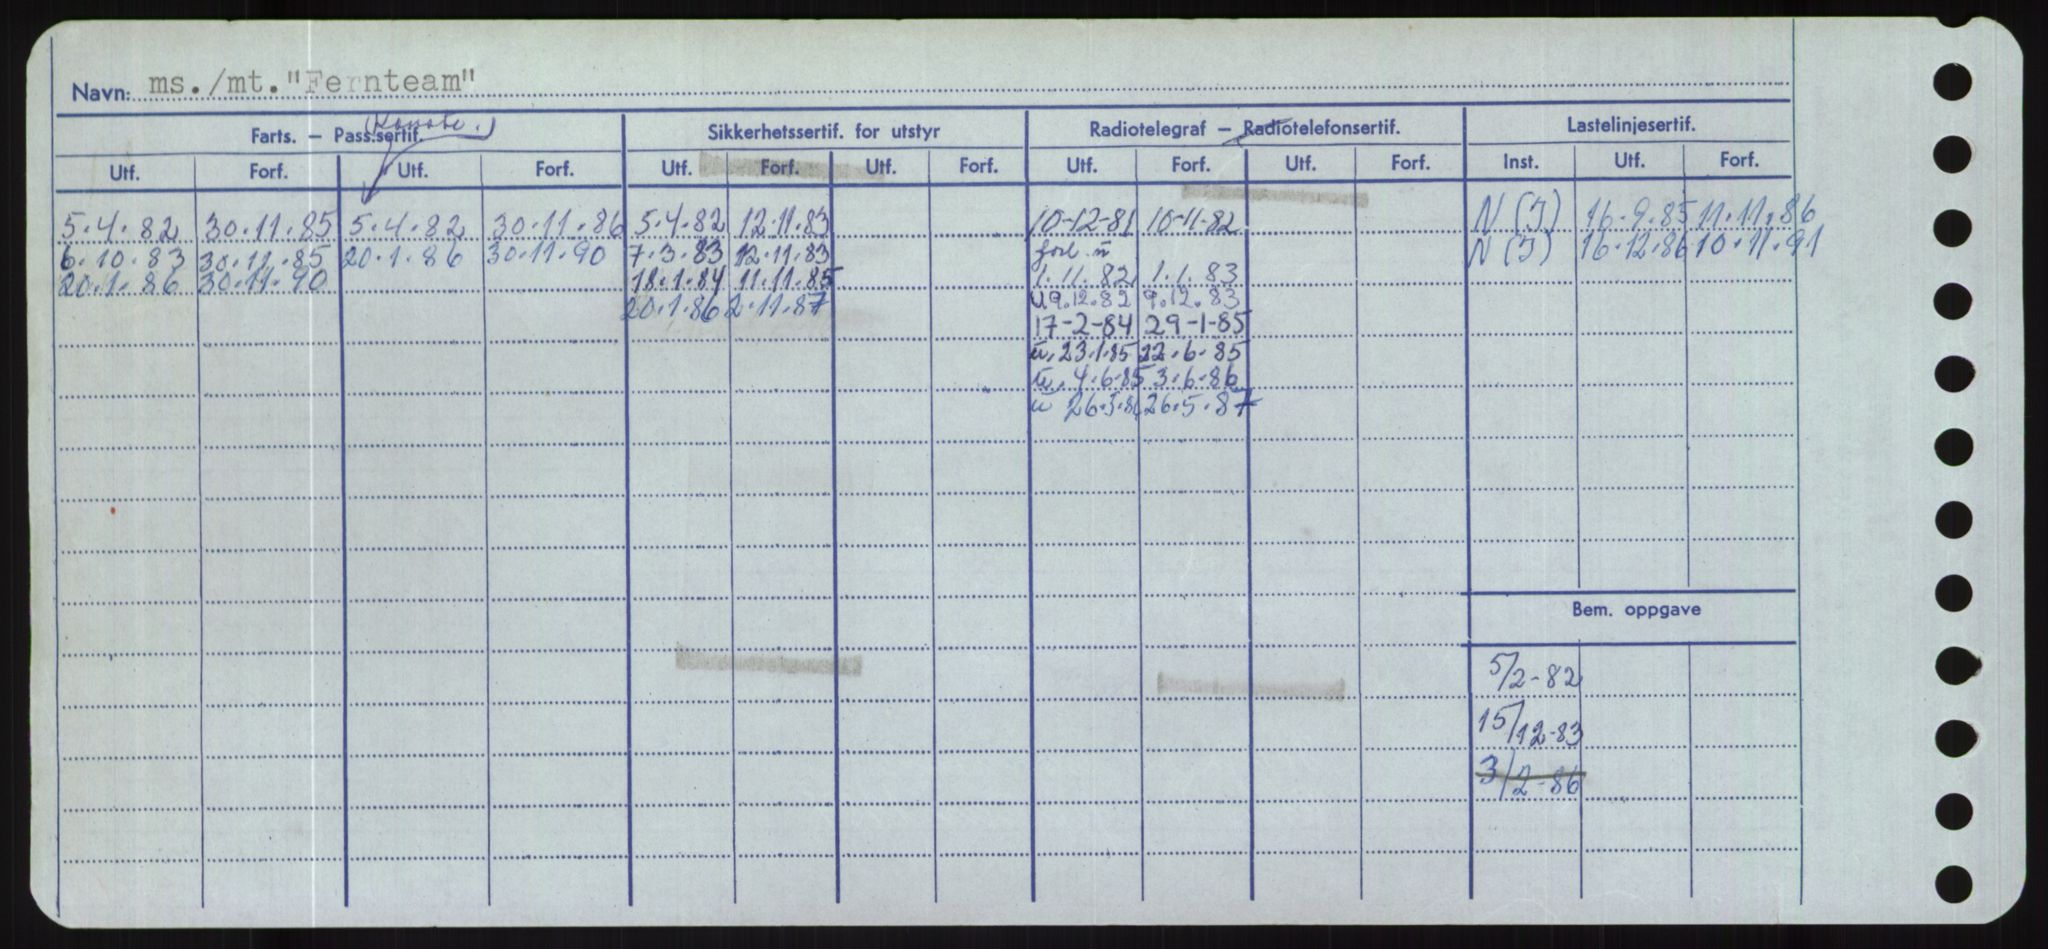 Navn: ms./mt."Fernteam"
Farts. — Pass.sertif. Sikkerhetssertif. for utstyr Radiotelegraf — Radiotelefonsertif. Lastelinjesertif.
Utf. Forf. Utf. Forf. Utf. Forf. Utf. Forf. Utf. Forf. Utf. Forf. Inst. Utf. Forf.
5.4.82 30.11.85 5.4.82 30.11.86 5.4.82 12.11.83 10-12-81 10-11-82 N (I) 16.9.85 11.11.86
6.10.83 30.11.85 20.1.86 30.11.90 7.3.83 12.11.83 forl. u N (I) 16.12.86 10.11.91
20.1.86 30.11.90 18.1.84 11.11.85 1.11.82 1.1.83
20.1.86 2.11.87 u 9.12.82 9.12.83
17-2-84 29-1-85
u. 23.1.85 22.6.85
u. 4.6.85 3.6.86
u 26.5.86 26.5.87
Bem. oppgave
5/2-82
15/12-83
3/2-86